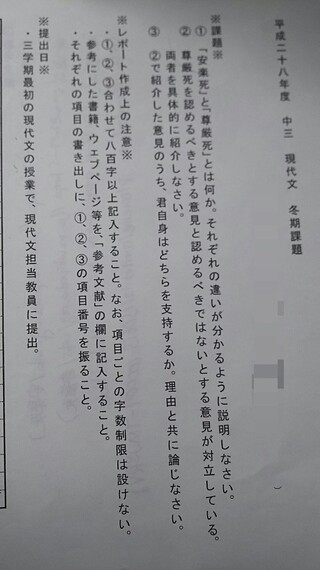 平成二十八年度　中三　現代文　冬期課題
※課題※
①「安楽死」と「尊厳死」とは何か。それぞれの違いが分かるように説明しなさい。
②　尊厳死を認めるべきとする意見と認めるべきではないとする意見が対立している。
両者を具体的に紹介しなさい。
③　②で紹介した意見のうち、君自身はどちらを支持するか。理由と共に論じなさい。
※レポート作成上の注意※
・①、②、③合わせて八百字以上記入すること。なお、項目ごとの字数制限は設けない。
・参考にした書籍、ウェブページ等を、「参考文献」の欄に記入すること。
・それぞれの項目の書き出しに、①、②、③の項目番号を振ること。
※提出日※
・三学期最初の現代文の授業で、現代文担当教員に提出。